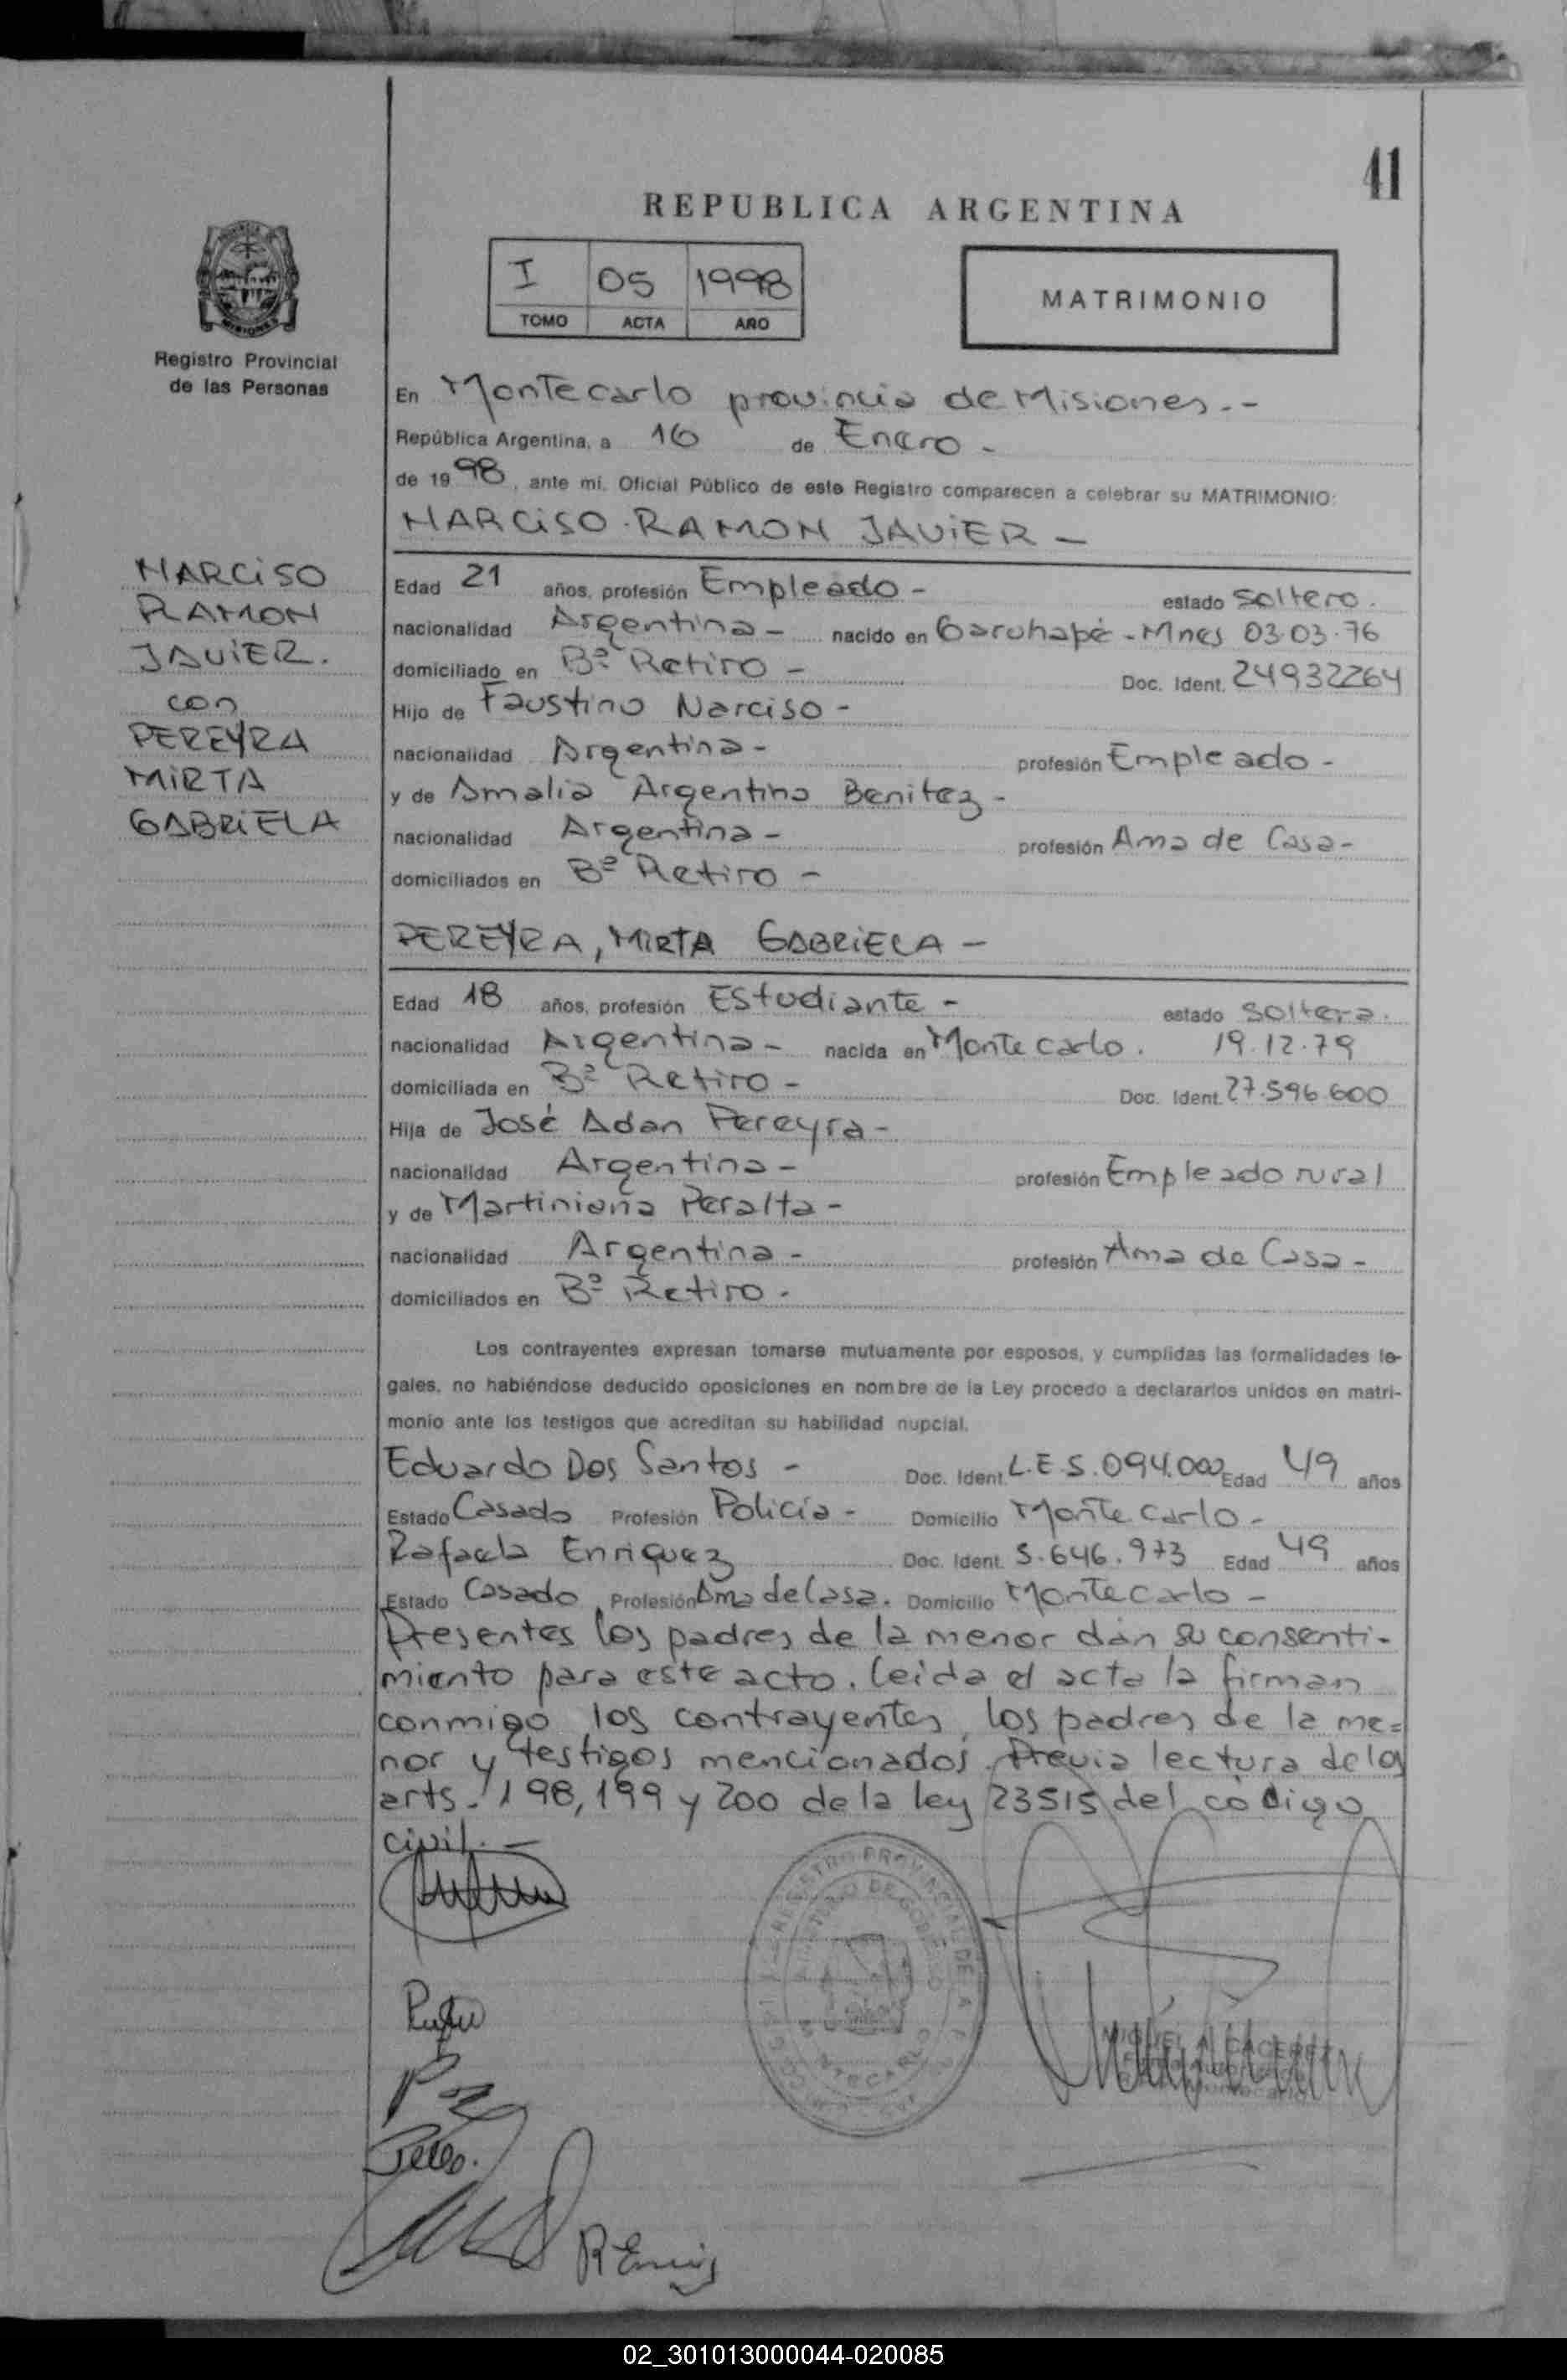 41
REPUBLICA ARGENTINA
I 05 1998
TOMO ACTA AÑO
MATRIMONIO
MISIONES
Registro Provincial
de las Personas
NARCISO
RAMON
JAVIER.
con
PEREYRA
MIRTA
GABRIELA
En Montecarlo provincia de Misiones.-
República Argentina, a 16 de Enero -
de 1998, ante mí, Oficial Público de este Registro comparecen a celebrar su MATRIMONIO:
NARCISO RAMON JAVIER -
Edad 21 años, profesión Empleado - estado soltero.
nacionalidad Argentina - nacido en Garuhapé - Mnes 03.03.76
domiciliado en Bº Retiro - Doc. Ident. 24932264
Hijo de Faustino Narciso -
nacionalidad Argentina - profesión Empleado -
y de Amalia Argentina Benitez -
nacionalidad Argentina - profesión Ama de Casa -
domiciliados en Bº Retiro -
PEREYRA, MIRTA GABRIELA -
Edad 18 años, profesión Estudiante - estado soltera.
nacionalidad Argentina - nacida en Montecarlo. 19.12.79
domiciliada en Bº Retiro - Doc. Ident. 27.596.600
Hija de José Adan Pereyra -
nacionalidad Argentina - profesión Empleado rural
y de Martiniana Peralta -
nacionalidad Argentina - profesión Ama de Casa -
domiciliados en Bº Retiro.
Los contrayentes expresan tomarse mutuamente por esposos, y cumplidas las formalidades le-
gales, no habiéndose deducido oposiciones en nombre de la Ley procedo a declararlos unidos en matri-
monio ante los testigos que acreditan su habilidad nupcial.
Eduardo Dos Santos - Doc. Ident. L.E 5.094.000 Edad 49 años
Estado Casado Profesión Policía - Domicilio Montecarlo -
Rafaela Enriquez Doc. Ident. 5.646.973 Edad 49 años
Estado Casado Profesión Ama de Casa. Domicilio Montecarlo -
Presentes los padres de la menor dan su consenti-
miento para este acto. leida el acta la firman
conmigo los contrayentes, los padres de la me=
nor y testigos mencionados. Previa lectura de los
arts. 198, 199 y 200 de la ley 23515 del código
civil. -
REGISTRO PROVINCIAL DE LA
MINISTERIO DE GOBIERNO
MONTECARLO
02_301013000044-020085